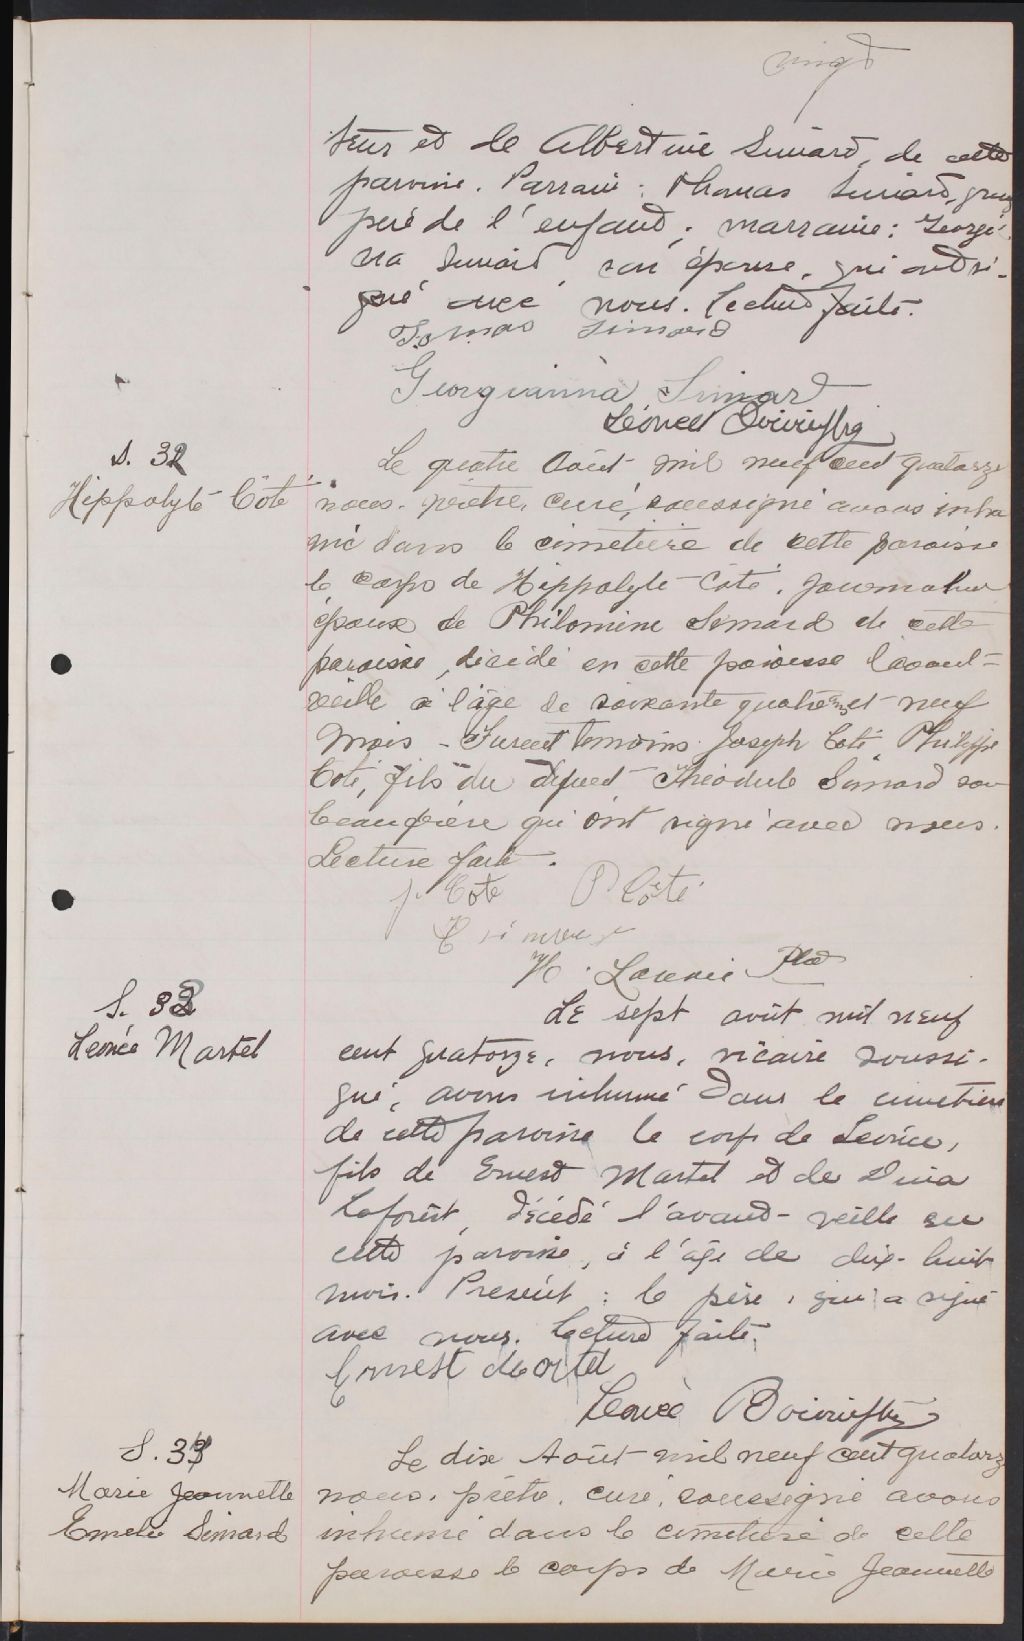 vingt
teur et de Albertine Simard, de cette
paroisse. Parrain: Thomas Simard, grand
père de l'enfant; marraine: Georgi-
na Simard son épouse, qui ont si-
gné avec nous. Lecture faite.
Tomas Simard
Georgianna Simard
Léonce Boivin ptre
S. 32
Hippolyte Côté
Le quatre Août mil neuf cent quatorze
nous, prêtre, curé, soussigné avons inhu
mé dans le cimetière de cette paroisse
le corps de Hippolyte Côté, journalier
époux de Philomine Simard de cette
paroisse, décédé en cette paroisse l'avant-
veille à l'âge de soixante quatre ans et neuf
mois - Furent temoins Joseph Coté, Philippe
Coté, fils du défunt Théodule Simard son
beaufrère qui ont signé avec nous.
Lecture faite.
J. Côté P Côté
T Simard
H. Lavoie Ptre
S. 33
Léonce Martel
Le sept août mil neuf
cent quatorze, nous, vicaire soussi-
gné, avons inhumé dans le cimetière
de cette paroisse le corps de Léonce,
fils de Ernest Martel et de Dina
Laforêt, décédé l'avant-veille en
cette paroisse, à l'âge de dix-huit
mois. Présent: le père, qui a signé
avec nous. Lecture faite.
Ernest Martel
Léonce Boivin ptre
S. 34
Marie Jeannette
Emelie Simard
Le dix Août mil neuf cent quatorze
nous, prêtre, curé, soussigné avons
inhumé dans le cimetière de cette
paroisse le corps de Marie Jeannette